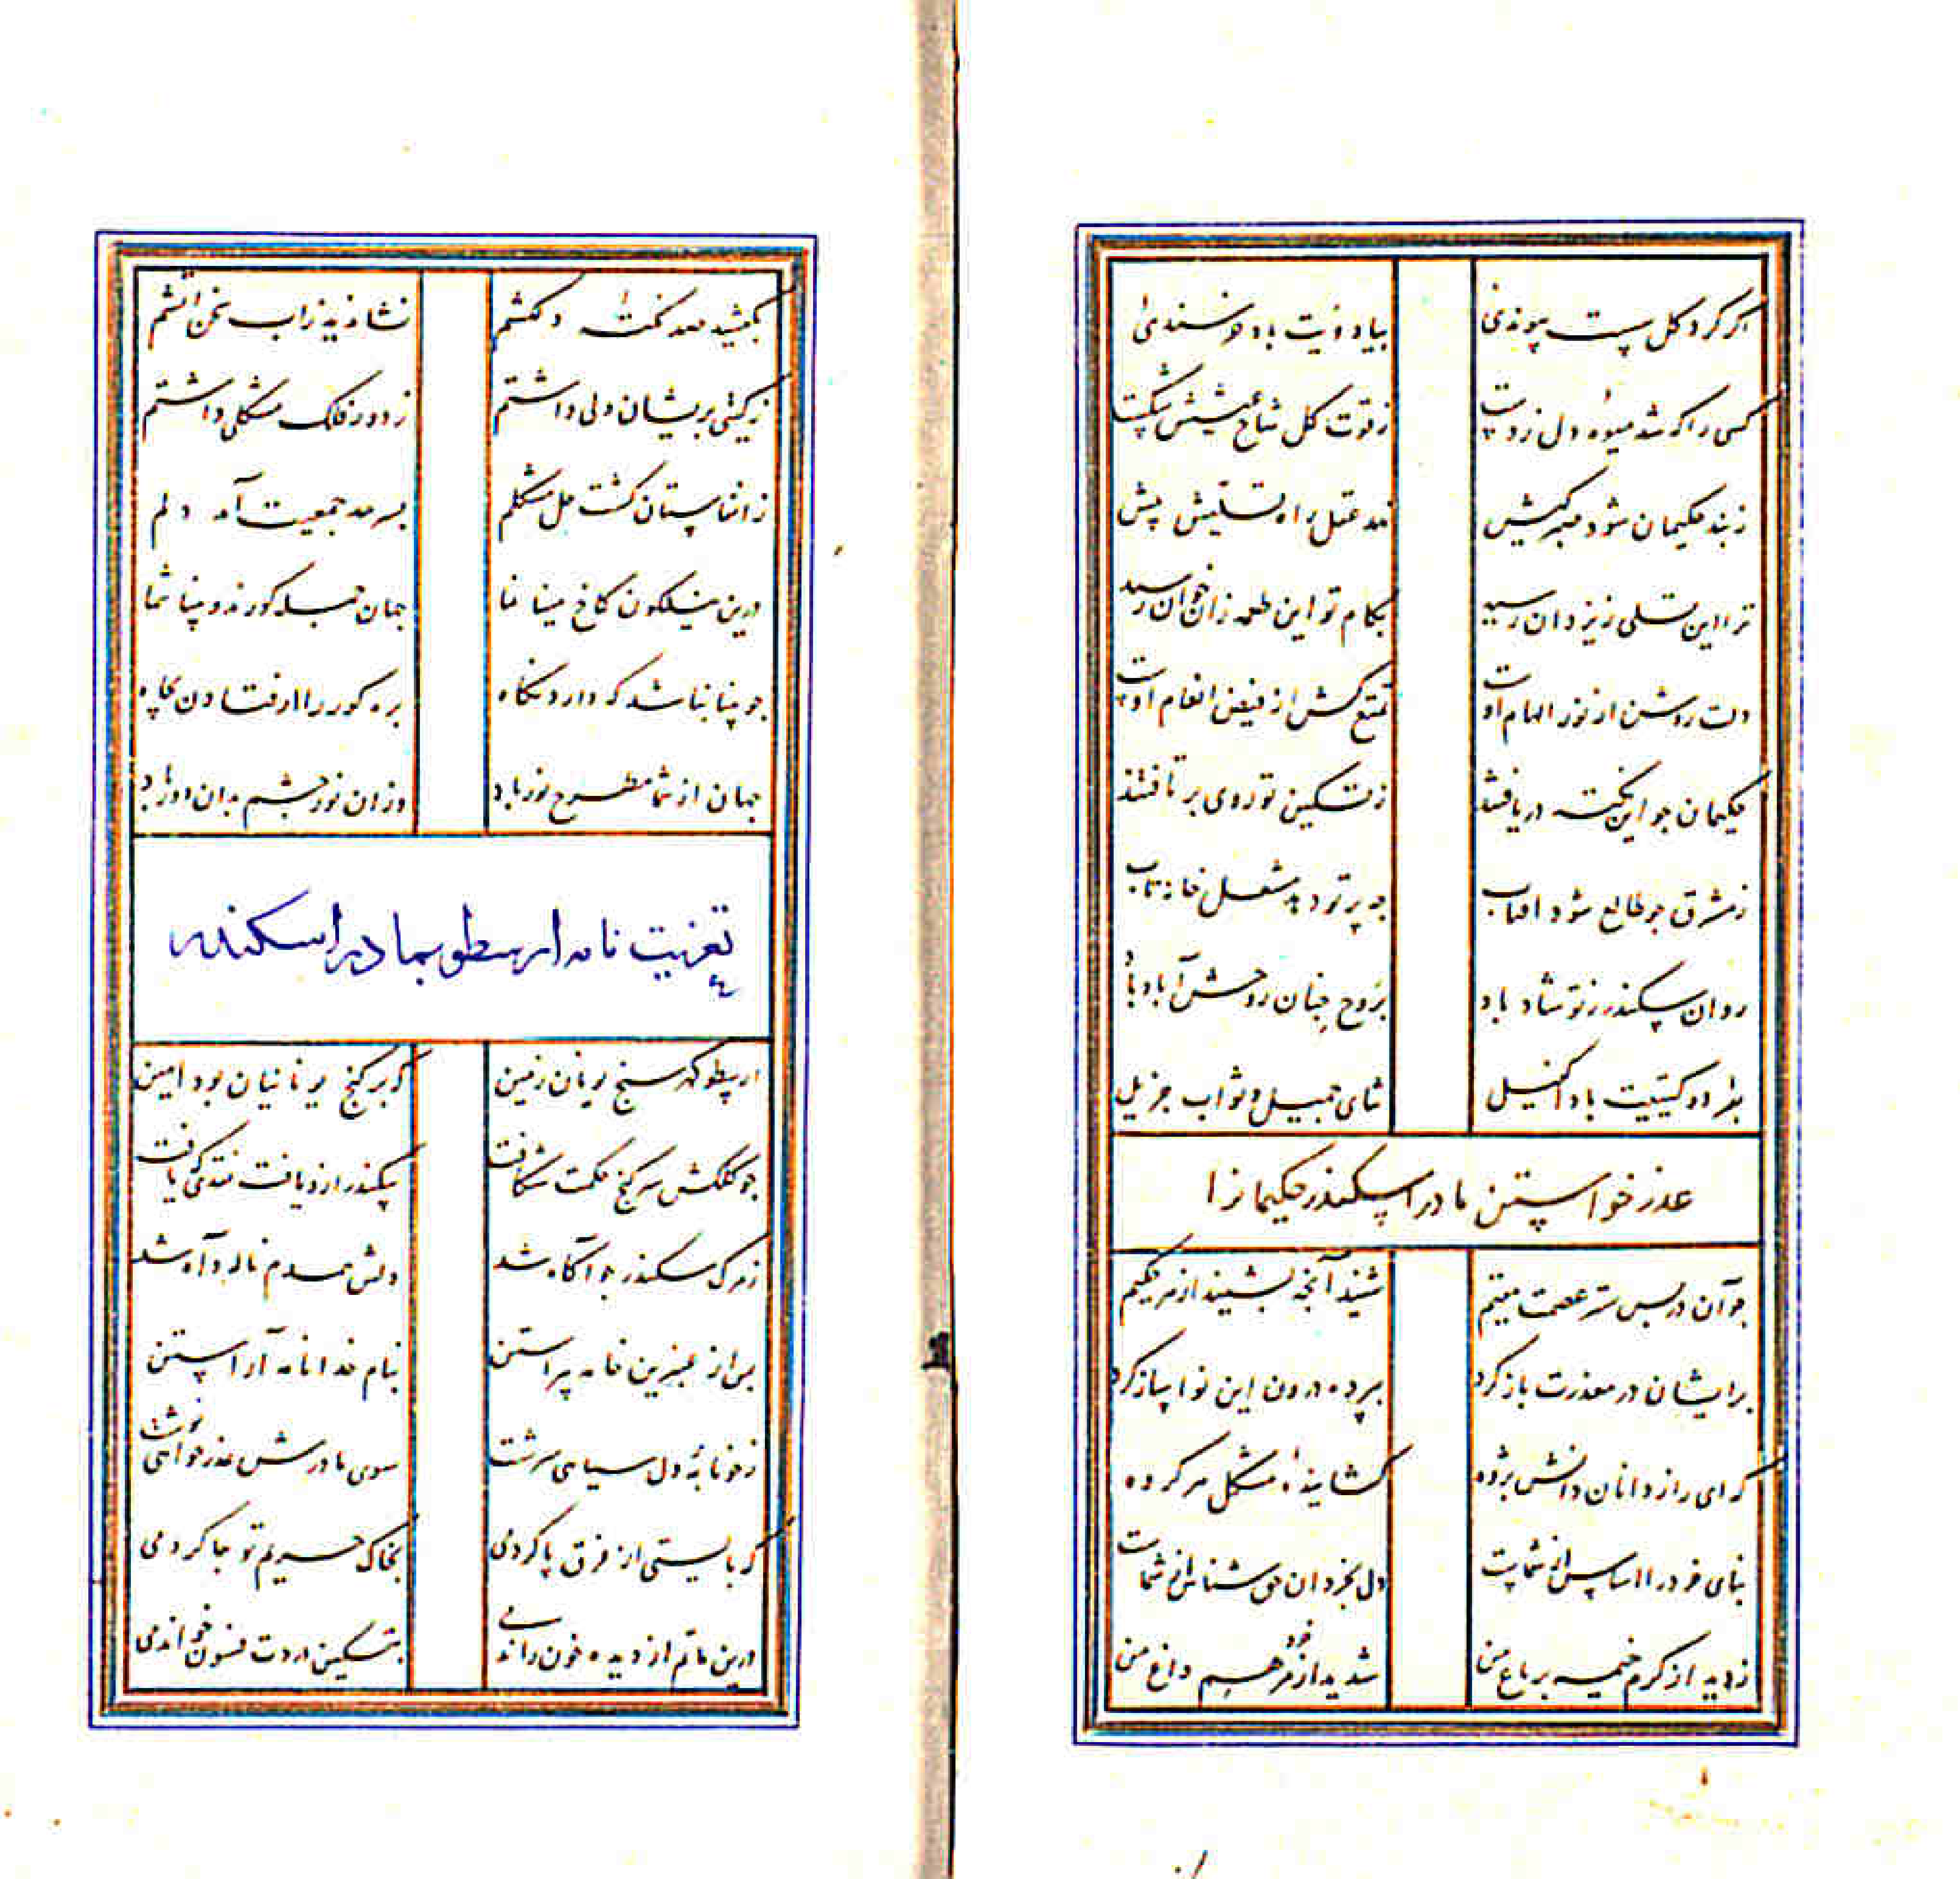 اگر کرد گل پست پیوندئی
بیاد ویت باد خرسندئی
کسی را که شد میوهٔ دل ز دست
ز قوت گل شاخ عیشش شکست
ز پند حکیمان شود صبر کیش
نهد عقل راه تسلیش پیش
ترا این تسلی ز یزدان رسید
بکام تو این طعمه زان خوان رسید
دلت روشن از نور الهام اوست
تمتع کش از فیض انعام اوست
حکیمان چو این نکته دریافتند
ز تسکین تو روی برتافتند
ز مشرق چو طالع شود افتاب
چه پرتو دهد مشعل خانه تاب
روان سکندر ز تو شاد باد
بروح جنان روحش آباد باد
بهر دو گیتیت باد کفیل
ثنای جمیل و ثواب جزیل
عذر خواستن مادر اسکندر حکیمانرا
چو آن در پس ستر عصمت مقیم
شنید آنچه بشنید از هر حکیم
بر ایشان در معذرت باز کرد
بپرده درون این نوا ساز کرد
که ای راز دانان دانش پژوه
گشایندهٔ مشکل هر گروه
بنای خرد را اساس از شماست
دل بخردان حق شناس از شماست
زدید از کرم خیمه بر باغ من
شدید از خرد مرهم داغ من
بگفتید صد نکتهٔ دلکشم
نشاندید ز آب سخن آتشم
ز گیتی پریشان دلی داشتم
ز دور فلک مشکلی داشتم
ز انفاستان گشت حل مشکلم
بسرحد جمعیت آمد دلم
درین نیلگون کاخ مینا نما
جهان جمله کورند و بینا شما
چو بینا نباشد که دارد نگاه
بره کور را از فتادن بچاه
جهان از شما مطرح نور باد
وزان نور چشم بدان دور باد
تعزیت نامه ارسطو بمادر اسکندر
ارسطو گهر سنج یونان زمین
که بر گنج یونانیان بود امین
چو کلکش سر گنج حکمت شکافت
سکندر ازو یافت نقدی که یافت
ز مرگ سکندر چو آگاه شد
دلش همدم ناله و آه شد
پس از عنبرین خامه پیراستن
بنام خدا نامه آراستن
ز خونابهٔ دل سیاهی سرشت
سوی مادرش عذر خواهی نوشت
که بایستی از فرق پا کردمی
بخاک حریم تو جا کردمی
درین ماتم از دیده خون راندمی
بتسکین دردت فسون خواندمی